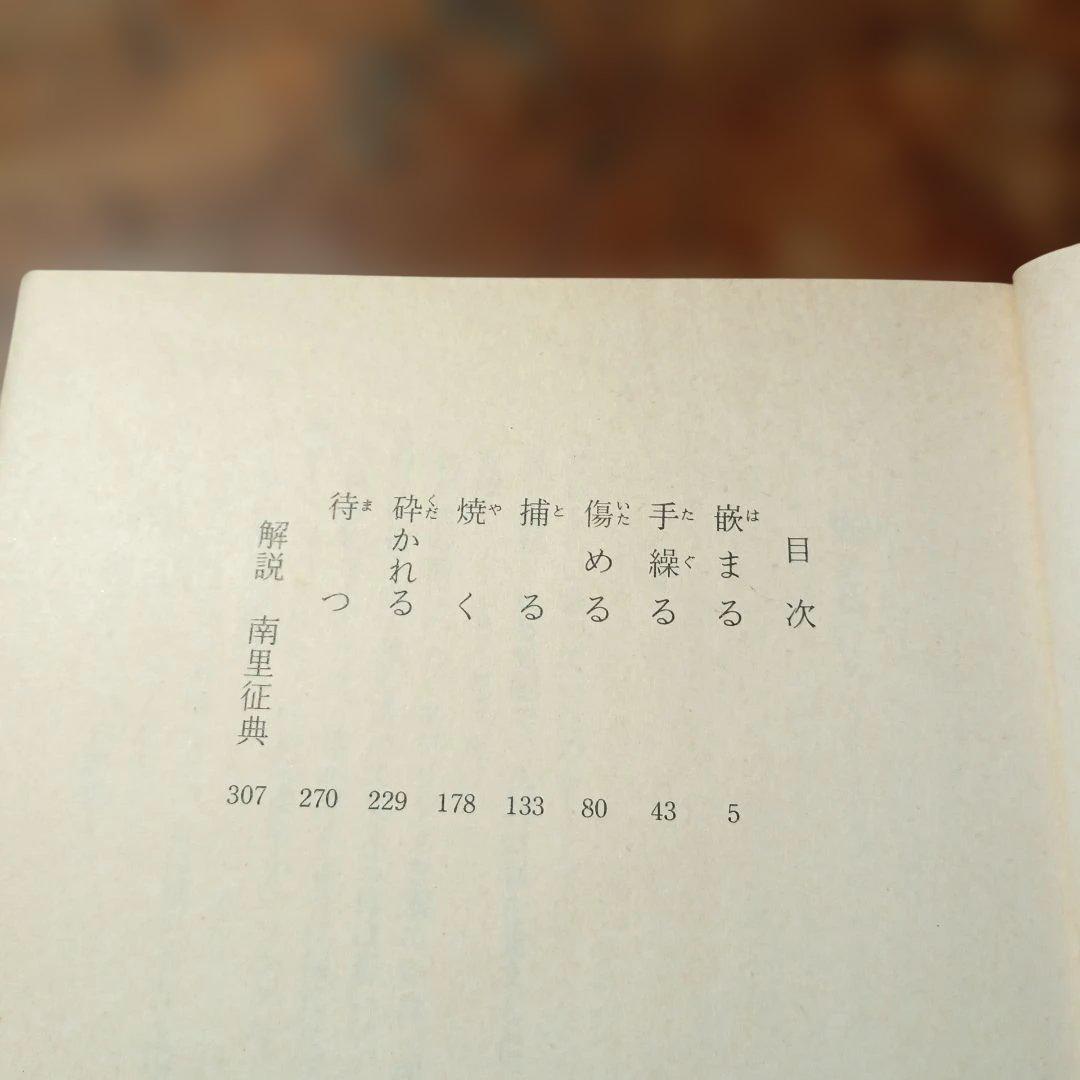 目次
嵌まる 5
手繰る 43
傷める 80
捕る 133
焼く 178
砕かれる 229
待つ 270
解説 南里征典 307